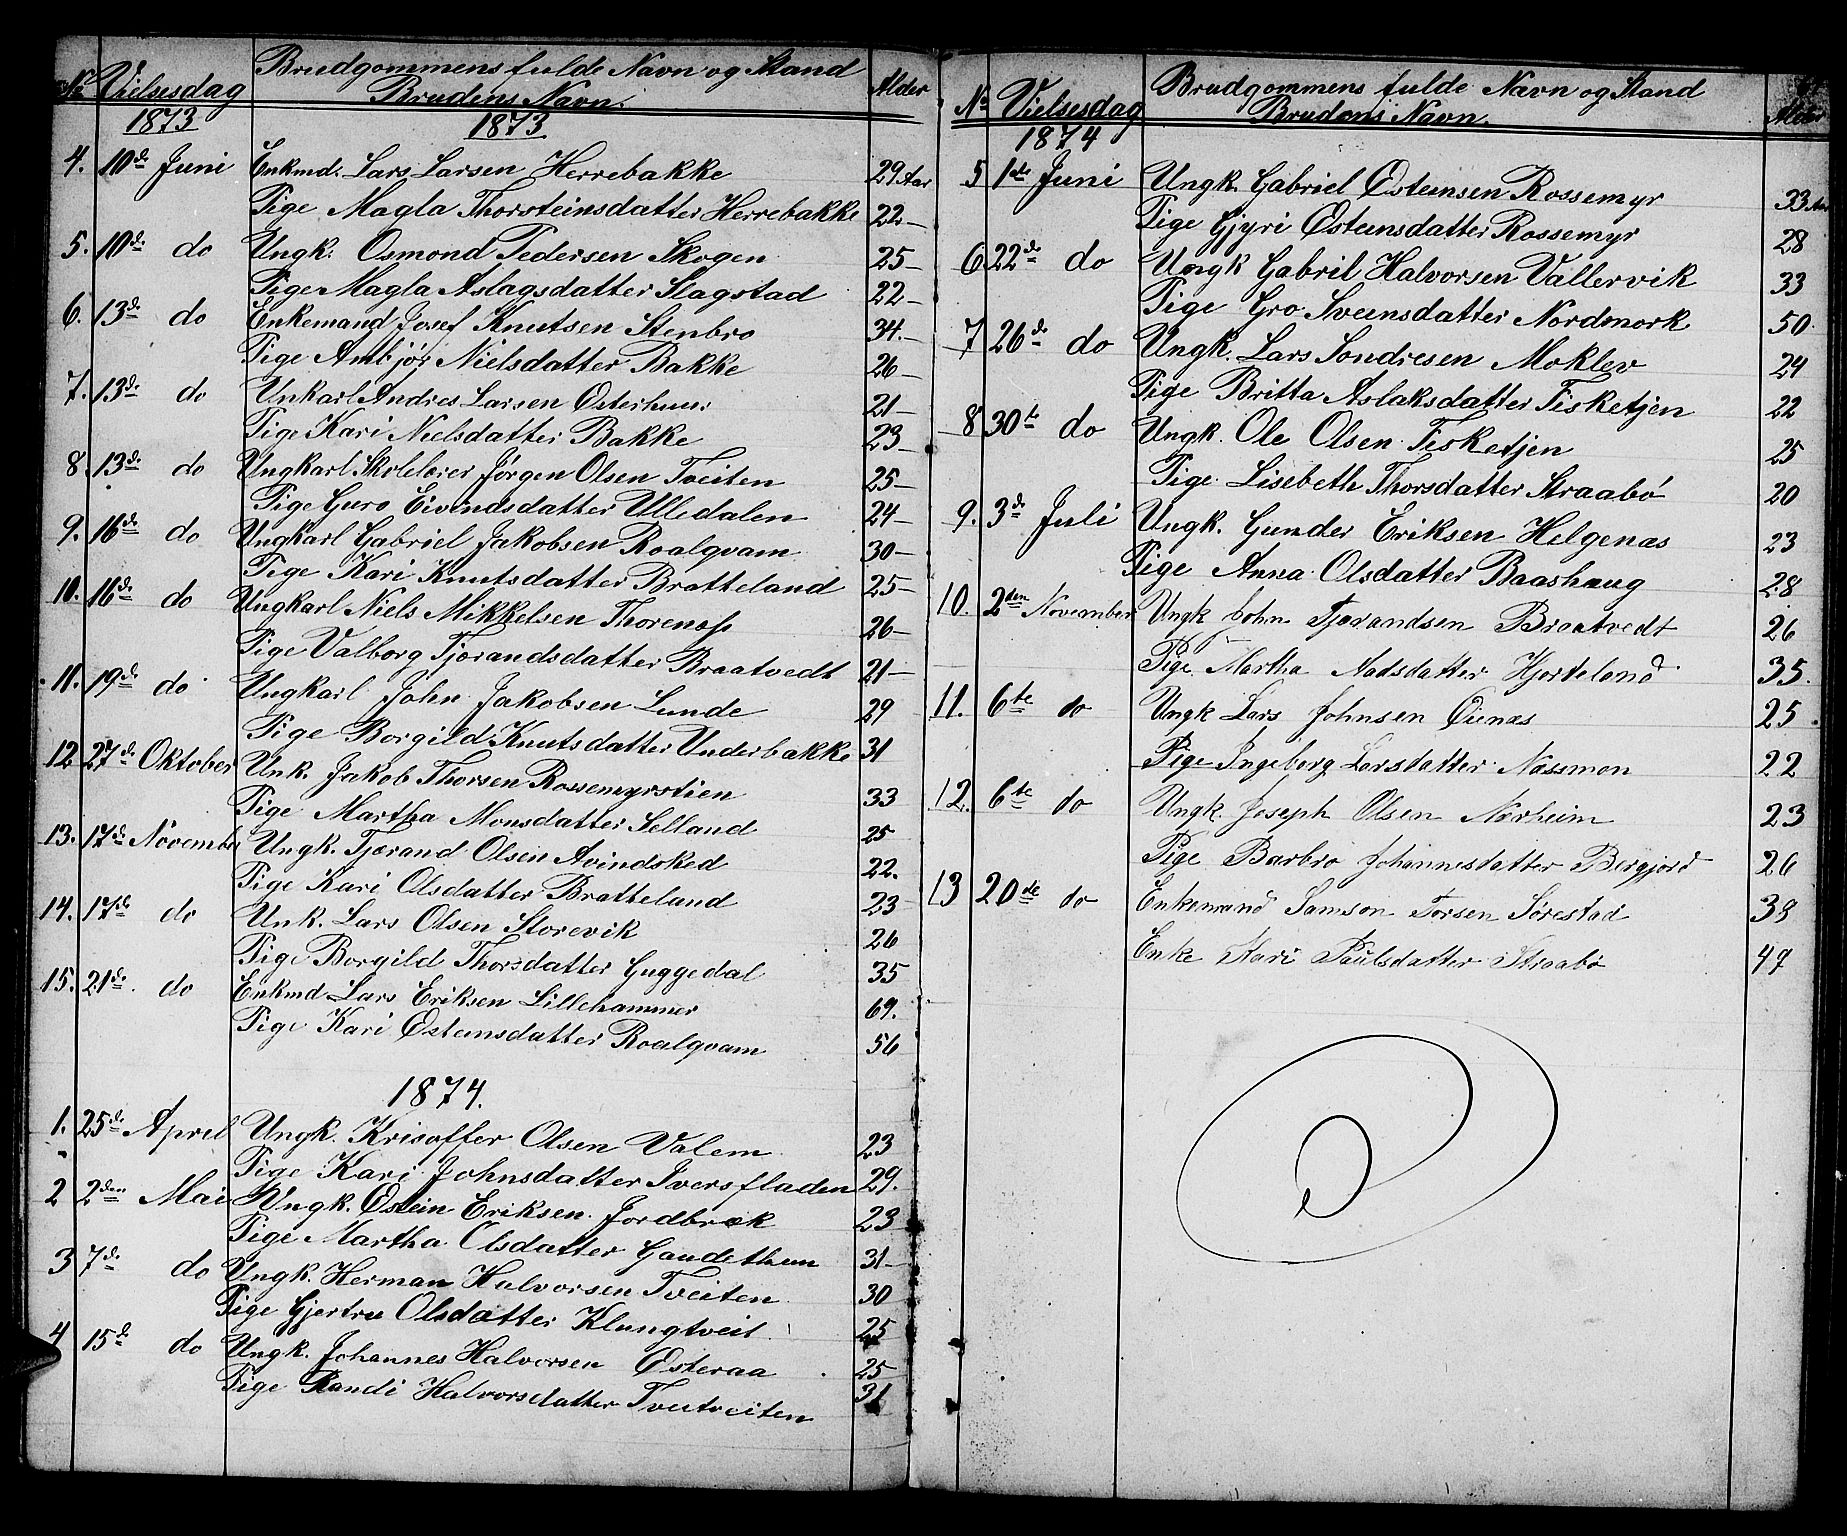 No Vielsesdag Brudgommens fulde Navn og Stand Alder
Brudens Navn.
1873 1873
4. 10de Juni Enkmd. Lars Larsen Herrebakke 29 Aar
Pige Magla Thorsteinsdatter Herrebakke 22 –
5. 10de do Ungk. Osmond Pedersen Skogen 25 –
Pige Magla Aslagsdatter Slagstad 22 –
6. 13de do Enkemand Josef Knutsen Stenbro 34. –
Pige Ambjør Nielsdatter Bakke 26 –
7. 13de do Unkarl Andres Larsen Østerhuus 21 –
Pige Kari Nielsdatter Bakke 23 –
8. 13de do Ungkarl Skolelærer Jørgen Olsen Tveiten 25 –
Pige Guro Eivindsdatter Ulledalen 24 –
9. 16de do Ungkarl Gabriel Jakobsen Roalqvam 30 –
Pige Kari Knutsdatter Bratteland 25 –
10. 16de do Ungkarl Niels Mikkelsen Thorenap 26 –
Pige Valborg Tjørandsdatter Braatvedt 21 –
11. 19de do Ungkarl John Jakobsen Lunde 29
Pige Borgild Knutsdatter Underbakke 31
12 27de Oktober Unk. Jakob Thorsen Rossemyrstien 33
Pige Martha Monsdatter Selland 25
13. 17de November Ungk. Tjørand Olsen Avindsked 22.
Pige Kari Olsdatter Bratteland 23
14. 17de do Unk. Lars Olsen Storevik 26
Pige Borgild Thorsdatter Guggedal 35
15. 21de do Enkmd Lars Eriksen Lillehammer 69.
Pige Kari Østensdatter Roalqvam 56
1874.
1. 25de Aprel Ungk. Krisoffer Olsen Valem 23
Pige Kari Johnsdatter Iversfladen 29.
2 2den Mai Ungk. Østein Eriksen Jordbræk 23
Pige Martha Olsdatter Gaudethun 31 –
3 7de do Ungk. Herman Halvorsen Tveiten 30
Pige Gjertru Olsdatter Klungtveit 25
4 15de do Ungk. Johannes Halvorsen Østeraa 25
Pige Randi Halvorsdatter Tveitveiten 31
No Vielsesdag Brudgommens fulde Navn og Stand Alder
Brudens Navn.
1874
5 1ste Juni Ungk. Gabriel Østensen Rossemyr 33 Aar
Pige Gjyri Østensdatter Rossemyr 28
6 22de do Ungk Gabril Halvorsen Vallervik 33
Pige Gro Svensdatter Nordmork 50
7 26de do Ungk. Lars Sondresen Moklev 24
Pige Britta Aslaksdatter Fisketjen 22
8 30te do Ungk. Ole Olsen Fisketjen 25
Pige Lisebeth Thorsdatter Straabø 20
9. 3de Juli Ungk. Gunder Eriksen Helgenæs 23
Pige Anna Olsdatter Baashaug 28
10. 2den November Ungk John Tjærandsen Braatvedt 26
Pige Martha Nadsdatter Hjorteland 35.
11. 6te do Ungk Lars Johnsen Øienæs 25.
Pige Ingeborg Larsdatter Næssmon 22
12. 6te do Ungk. Joseph Olsen Nærheim 23
Pige Barbro Johannesdatter Bergjord 26
13 20de do Enkemand Samson Torsen Sørestad 38
Enke Kari Paulsdatter Straabø 47